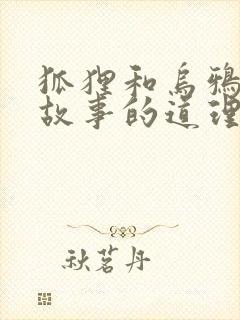 狐狸和乌鸦
故事的道理
秋茗丹